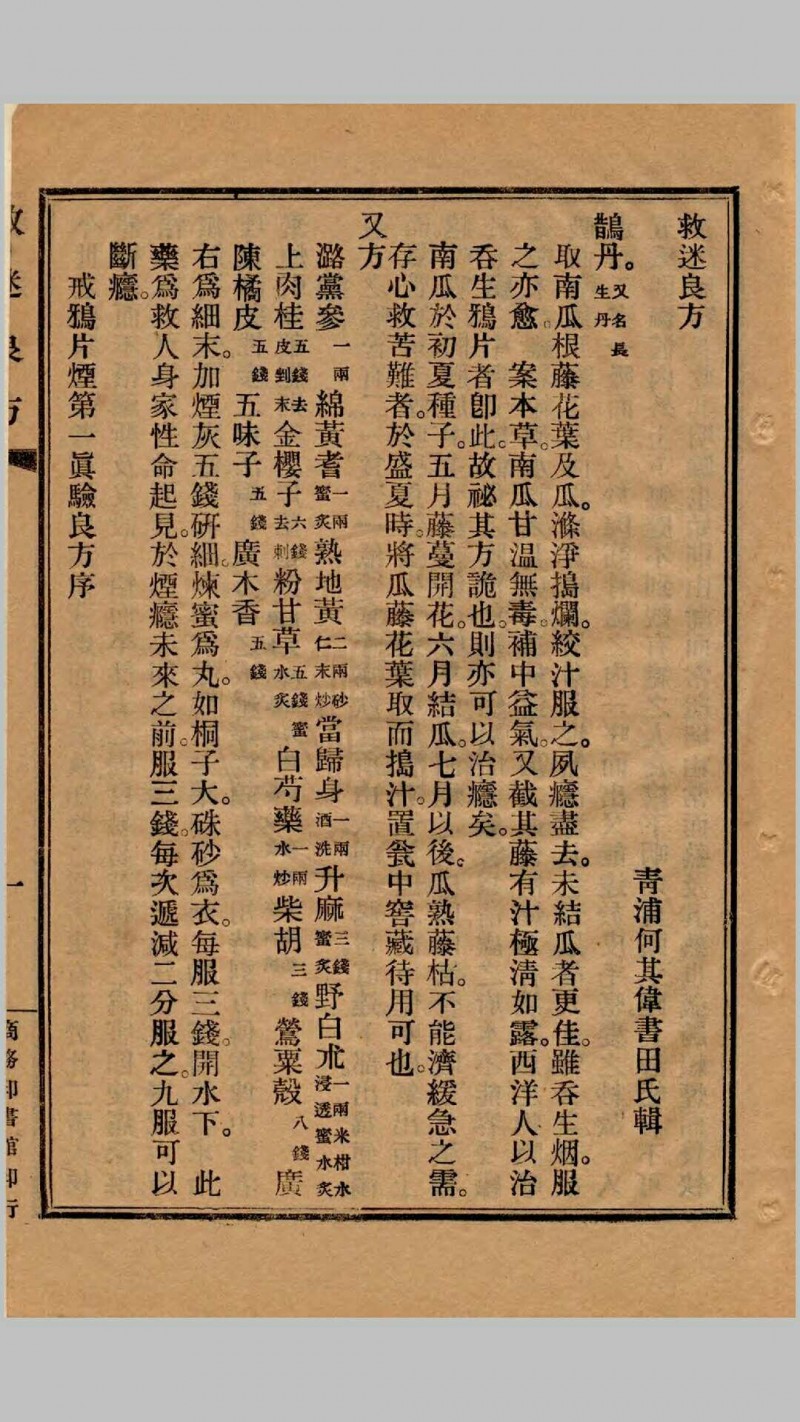 救迷良方
靑浦何其偉書田氏輯
鵲丹。又名長生丹
取南瓜根藤花葉及瓜。滌淨搗爛。絞汁服之。夙癮盡去。未結瓜者更佳。雖吞生烟。服
之亦愈。 案本草。南瓜甘温無毒。補中益氣。又截其藤有汁極淸如露。西洋人以治
吞生鴉片者卽此。故祕其方詭也。則亦可以治癮矣。
南瓜於初夏種子。五月藤蔓開花。六月結瓜。七月以後。瓜熟藤枯。不能濟緩急之需。
存心救苦難者。於盛夏時。將瓜藤花葉取而搗汁。置瓮中窖藏待用可也。
又方
潞黨參一兩 綿黃耆一兩蜜炙 熟地黃二兩砂仁末炒 當歸身一兩酒洗 升麻三錢蜜炙 野白朮一兩米柑水浸透蜜水炙
上肉桂五錢去皮剉末 金櫻子六錢去刺 粉甘草五錢蜜水炙 白芍藥一兩水炒 柴胡三錢 鶯粟殼八錢 廣
陳橘皮五錢 五味子五錢 廣木香五錢
右爲細末。加煙灰五錢硏細。煉蜜爲丸。如桐子大。硃砂爲衣。每服三錢。開水下。 此
藥爲救人身家性命起見。於煙癮未來之前。服三錢。每次遞減二分服之。九服可以
斷癮。
戒鴉片煙第一眞驗良方序
救迷良方
一
商務印書館印行